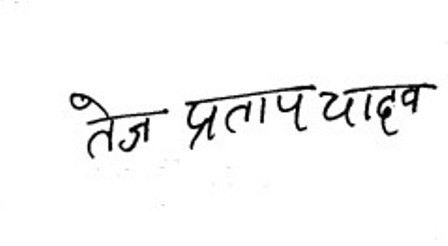 तेज प्रताप यादव